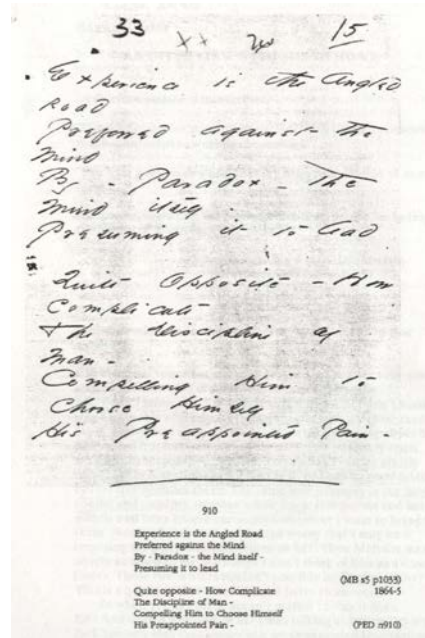 33 ++ 15
Experience is the Angled
Road
Preferred against the
Mind
By - Paradox - The
Mind itself
Presuming it to lead
Quite Opposite - How
Complicate
The Discipline of
Man -
Compelling Him to
Choose Himself
His Preappointed Pain -
910
Experience is the Angled Road
Preferred against the Mind
By - Paradox - the Mind itself -
Presuming it to lead
(MB s5 p1033)
Quite opposite - How Complicate 1864-5
The Discipline of Man -
Compelling Him to Choose Himself
His Preappointed Pain - (PED n910)